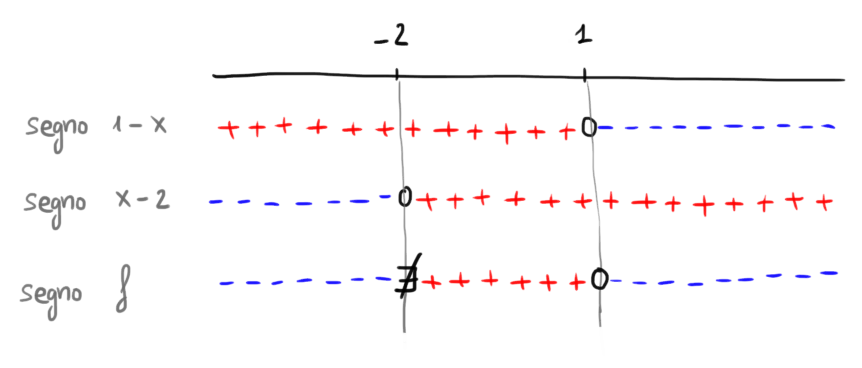 -2 1
segno 1-x + + + + + + + + + + + + 0 - - - - - - - - -
segno x-2 - - - - - - - 0 + + + + + + + + + + + + + +
segno f - - - - - - - ∄ + + + + + + 0 - - - - - - - - -